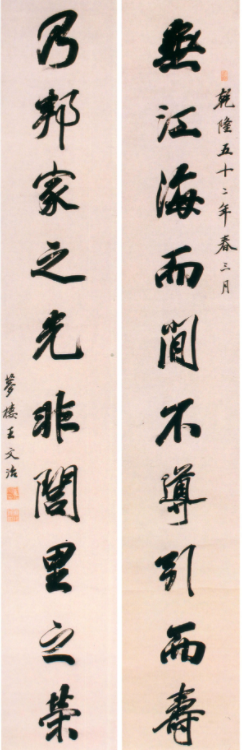 無江海而閒不導引而壽
乾隆五十二年春三月
乃邦家之光非閭里之榮
夢樓王文治